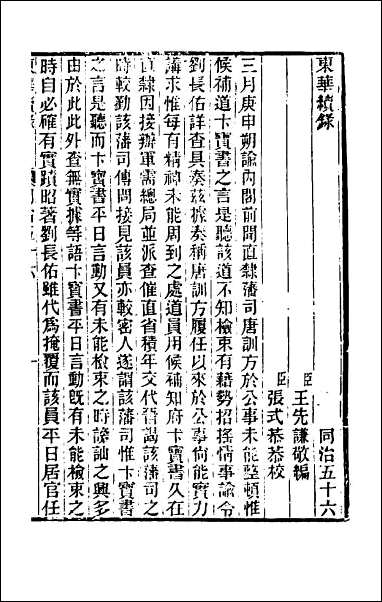 東華續錄
同治五十六
臣王先謙敬編
臣張式恭恭校
三月庚申朔諭內閣前聞直隸藩司唐訓方於公事未能整頓惟
候補道卞寶書之言是聽該道不知檢束有藉勢招搖情事諭令
劉長佑詳查具奏茲據奏稱唐訓方履任以來於公事尚能實力
講求惟每有精神未能周到之處道員用候補知府卞寶書久在
直隸因接辦軍需總局並派查催直省積年交代晉謁該藩司之
時較勤該藩司傳問接見該員亦較密人遂謂該藩司惟卞寶書
之言是聽而卞寶書平日言動又有未能檢束之時謗訕之興多
由於此此外查無實據等語卞寶書平日言動既有未能檢束之
時自必確有實蹟昭著劉長佑雖代為掩覆而該員平日居官任